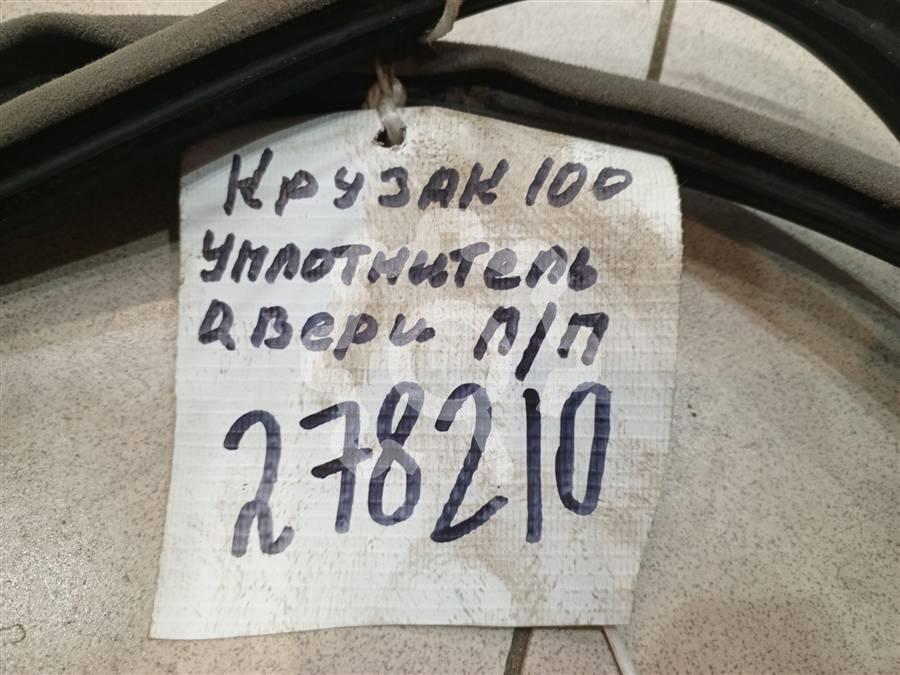 Крузак 100
уплотнитель
двери п/п
278210